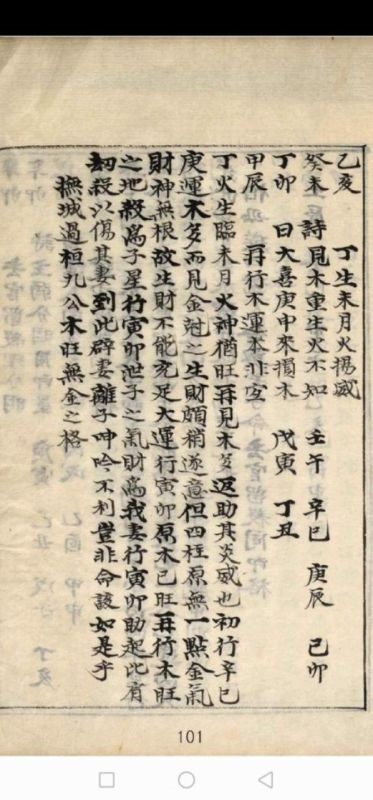 乙亥 丁生未月火揚威
癸未 詩 見木重生火不知 壬午 辛巳 庚辰 己卯
丁卯 曰 大喜庚申來損木 戊寅 丁丑
甲辰 再行木運本非宐
丁火生臨未月火神猶旺再見木多返助其炎威也初行辛巳
庚運木多而見金尅之生財頗稍遂意但四柱原無一點金氣
財神無根故生財不能充足大運行寅卯原木已旺再行木旺
之地殺為子星行寅卯泄子之氣財為我妻行寅卯助起此有
刼殺以傷其妻到此辟妻離子呻吟不利豈非命該如是乎
撫城過桓九公木旺無金之格
101